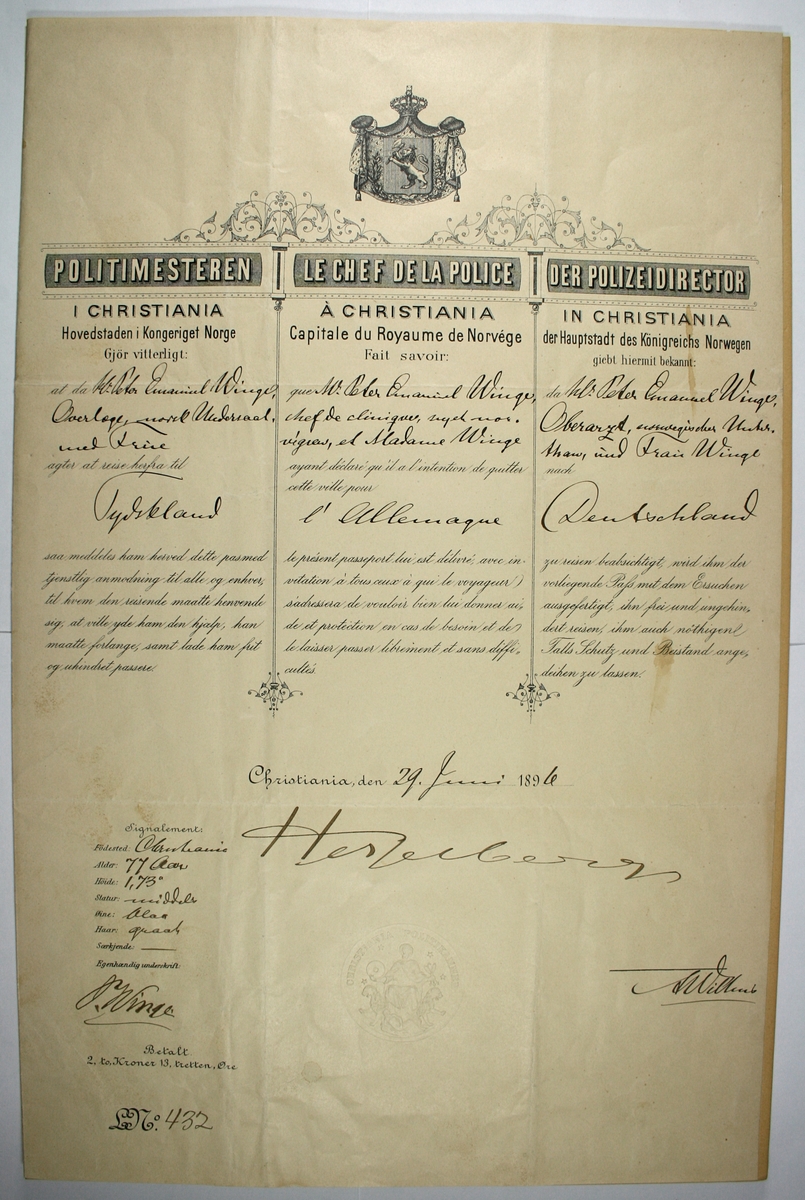 POLITIMESTEREN
I CHRISTIANIA
Hovedstaden i Kongeriget Norge
Gjör vitterligt:
at da Hr. Peter Emanuel Winge,
Overlæge, norsk Undersaat,
med Frue
agter at reise herfra til
Tydskland
saa meddeles ham herved dette pas med
tjenstlig anmodning til alle og enhver,
til hvem den reisende maatte henvende
sig, at ville yde ham den hjælp, han
maatte forlange, samt lade ham frit
og uhindret passere.
LE CHEF DE LA POLICE
À CHRISTIANIA
Capitale du Royaume de Norvége
Fait savoir:
que Mr. Peter Emanuel Winge,
chef de clinique, sujet nor-
végien, et Madame Winge
ayant déclaré qu'il a l'intention de quitter
cette ville pour
l'Allemagne
le présent passeport lui est délivré, avec in-
vitation à tous ceux à qui le voyageur
s'adressera de vouloir bien lui donner ai-
de et protection en cas de besoin et de
le laisser passer librement et sans diffi-
cultés.
DER POLIZEIDIRECTOR
IN CHRISTIANIA
der Hauptstadt des Königreichs Norwegen
giebt hiermit bekannt:
da Hr. Peter Emanuel Winge,
Oberarzt, norwegischer Unter-
than, und Frau Winge
nach
Deutschland
zu reisen beabsichtigt, wird ihm der
vorliegende Paß mit dem Ersuchen
ausgefertigt, ihn frei und ungehin-
dert reisen, ihm auch nöthigen
Falls Schutz und Beistand ange-
deihen zu lassen.
Christiania, den 29. Juni 1896
Signalement:
Födested: Christiania
Alder: 77 Aar
Höide: 1,73
Statur: middels
Øine: blaa
Haar: graat
Særkjende: —
Egenhændig underskrift:
Winge
Betalt
2, to, Kroner 13, tretten, Øre
LNo. 432